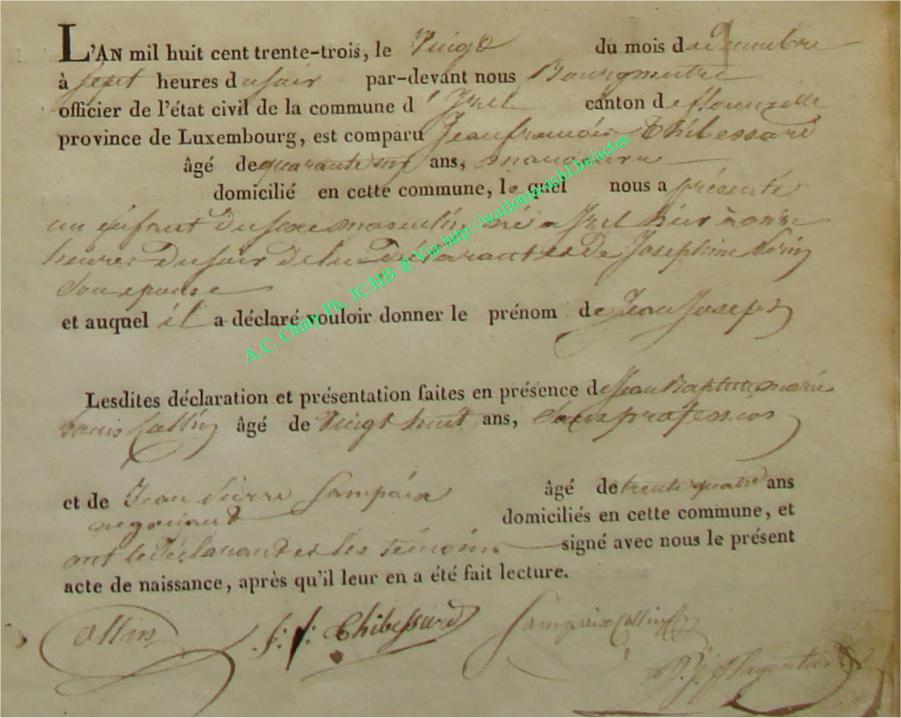 L'AN mil huit cent trente-trois, le Vingt du mois de Décembre
à sept heures du soir par-devant nous Bourgmestre
officier de l'état civil de la commune d'Izel canton de florenville
province de Luxembourg, est comparu Jean françois Thibessard
âgé de quarante un ans,
domicilié en cette commune, le quel nous a présenté
un enfant du sexe masculin né a Izel hier à onze
heures du soir de lui déclarant et de Josephine
son epouse
et auquel il a déclaré vouloir donner le prénom de Jean Joseph
Lesdites déclaration et présentation faites en présence de Jean Baptiste marie
Louis Collin âgé de vingt huit ans, sans profession
et de Jean Pierre Lampaix âgé de trente quatre ans
negociant domiciliés en cette commune, et
ont le déclarant et les témoins signé avec nous le présent
acte de naissance, après qu'il leur en a été fait lecture.
Collin J: f: Thibessard Lampaix Collin
A.C. Chiny Ph. JCHB ® Via http://wallonica